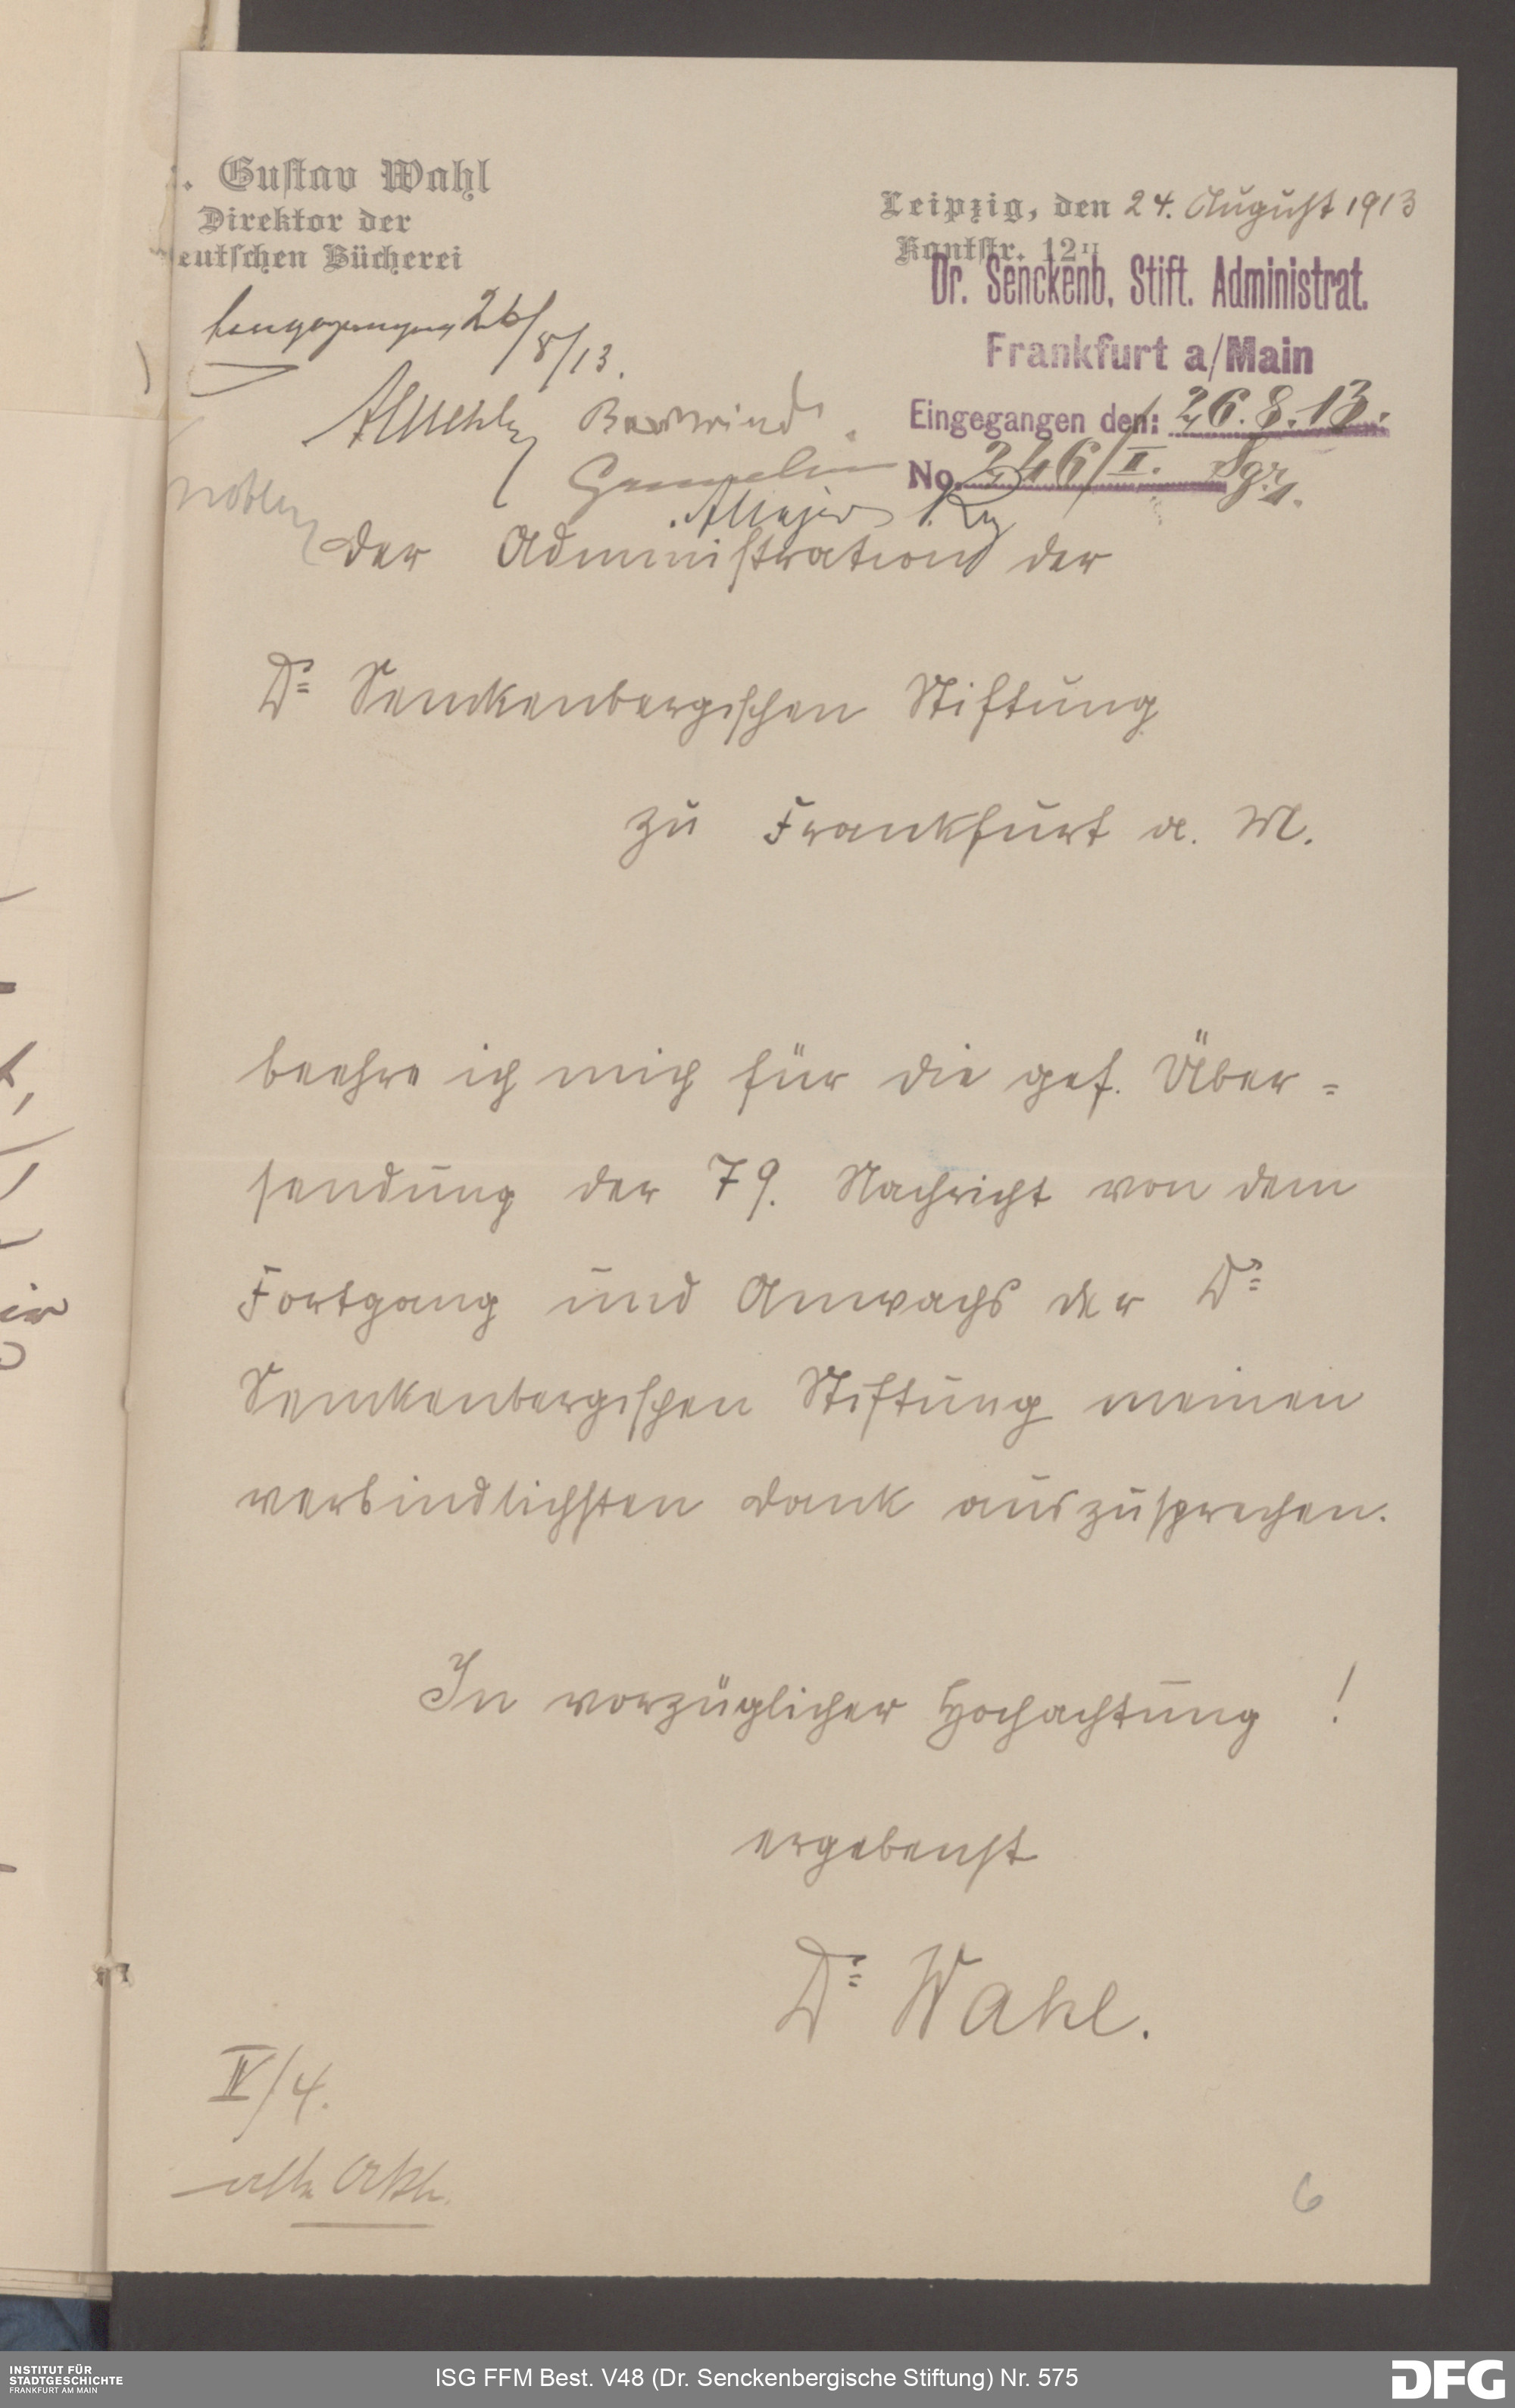 . Gustav Wahl
Direktor der
eutschen Bücherei
Leipzig, den 24. August 1913
Kantstr. 12 II
Dr. Senckenb. Stift. Administrat.
Frankfurt a/Main
Eingegangen den: 26.8.13.
No. 246/II.
26/8/13.
Der Administration der
Dr Senckenbergischen Stiftung
zu Frankfurt a. M.
beehre ich mich für die gef. Über=
sendung der 79. Nachricht von dem
Fortgang und Anwachs der Dr
Senckenbergischen Stiftung meinen
verbindlichsten Dank auszusprechen.
In vorzüglicher Hochachtung !
ergebenst
Dr Wahl.
IV/4.
6
INSTITUT FÜR
STADTGESCHICHTE
FRANKFURT AM MAIN
ISG FFM Best. V48 (Dr. Senckenbergische Stiftung) Nr. 575
DFG